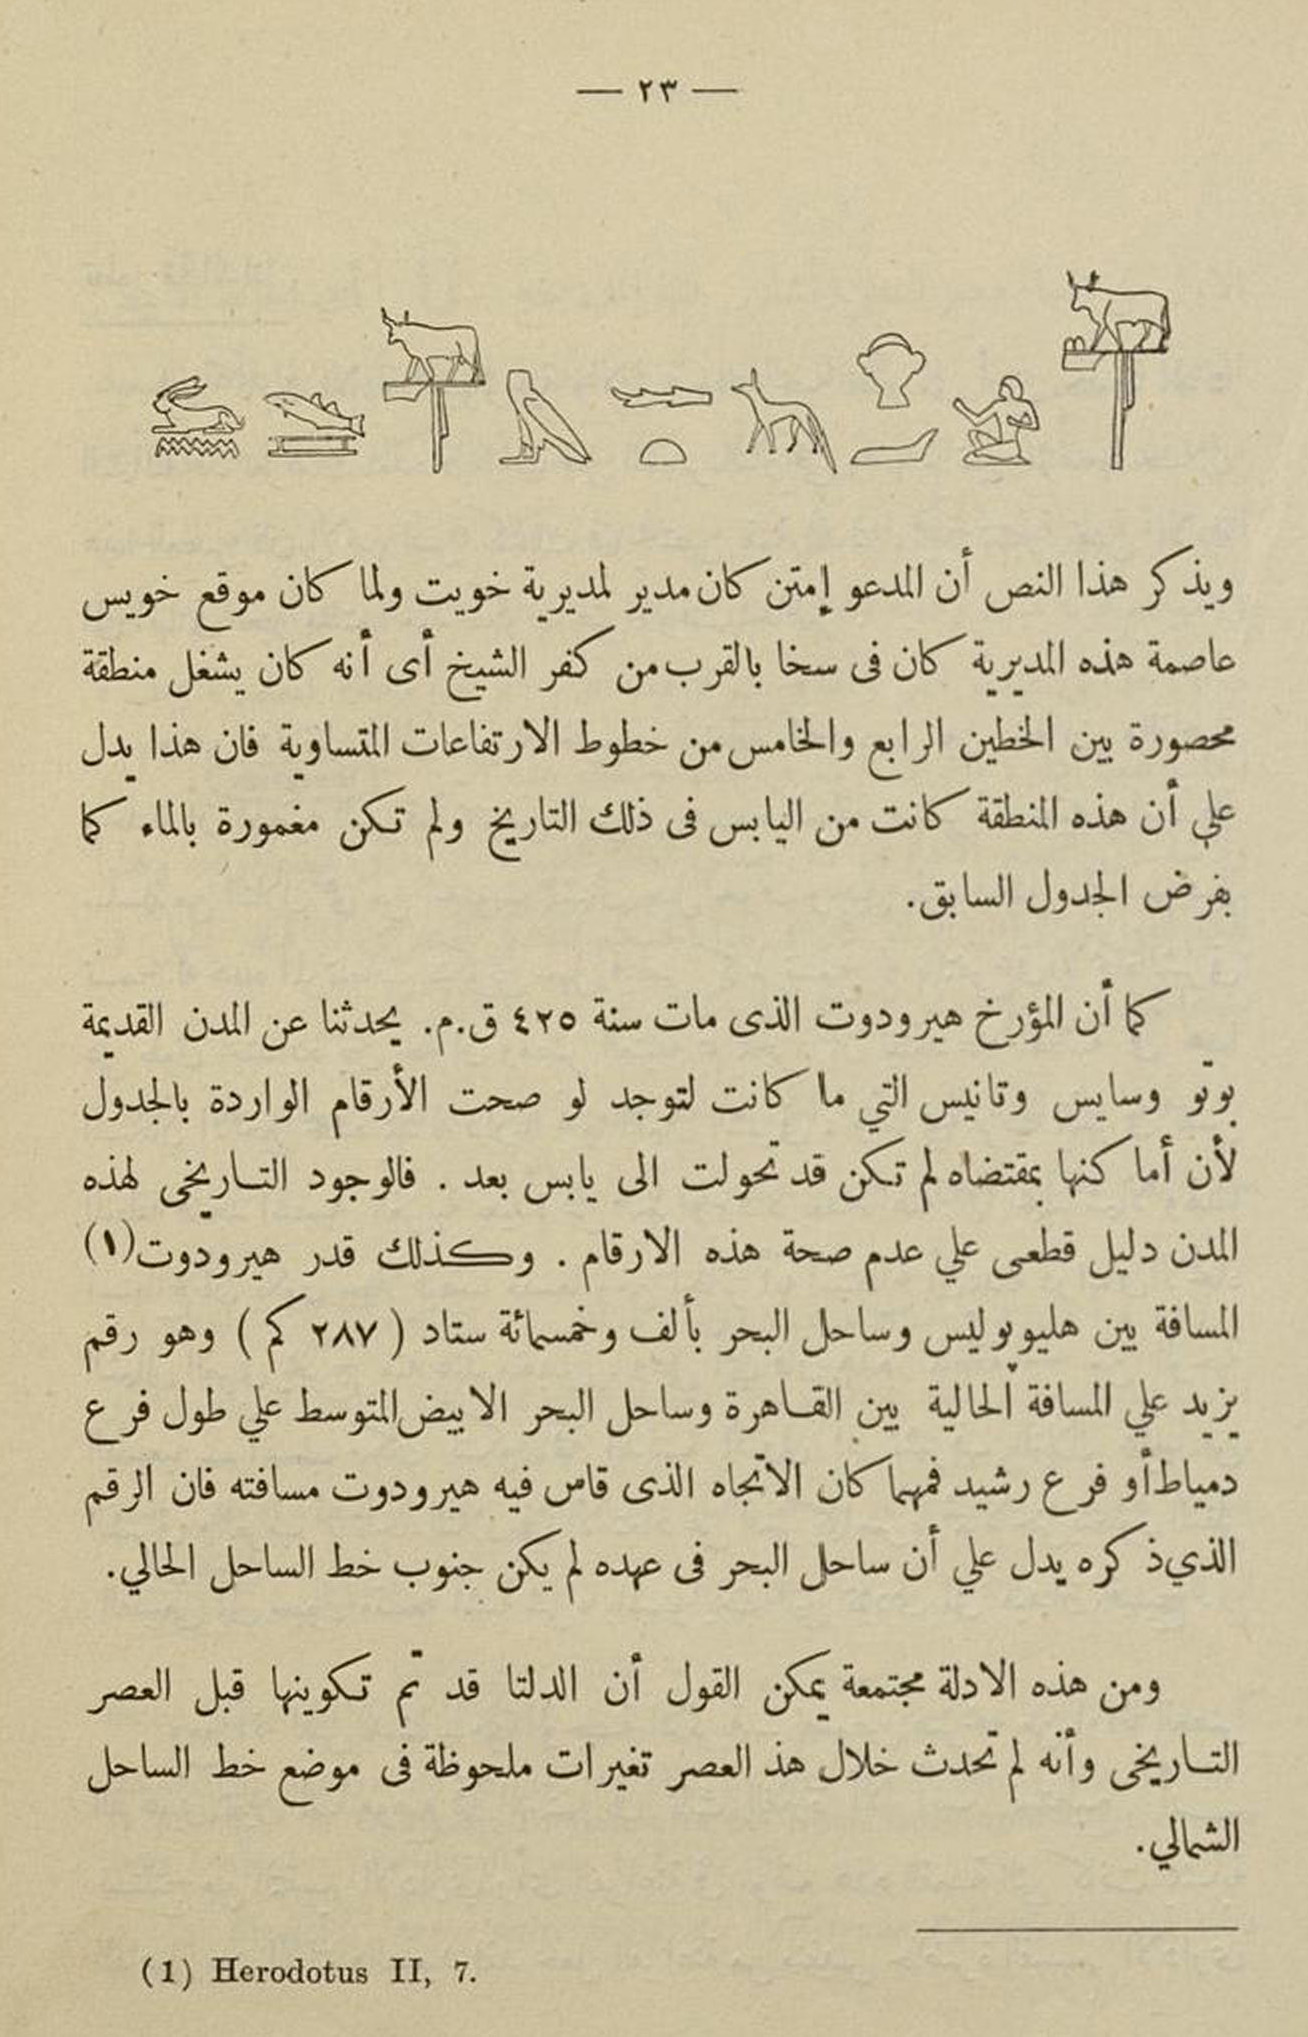 — ٢٣ —
ويذكر هذا النص أن المدعو إمتن كان مدير لمديرية خويت ولما كان موقع خويس
عاصمة هذه المديرية كان فى سخا بالقرب من كفر الشيخ أى أنه كان يشغل منطقة
محصورة بين الخطين الرابع والخامس من خطوط الارتفاعات المتساوية فان هذا يدل
على أن هذه المنطقة كانت من اليابس فى ذلك التاريخ ولم تكن مغمورة بالماء كما
يفرض الجدول السابق.
كما أن المؤرخ هيرودوت الذى مات سنة ٤٢٥ ق.م. يحدثنا عن المدن القديمة
بوتو وسايس وتانيس التي ما كانت لتوجد لو صحت الأرقام الواردة بالجدول
لأن أماكنها بمقتضاه لم تكن قد تحولت الى يابس بعد . فالوجود التاريخى لهذه
المدن دليل قطعى علي عدم صحة هذه الارقام . وكذلك قدر هيرودوت(١)
المسافة بين هليوبوليس وساحل البحر بألف وخمسمائة ستاد ( ٢٨٧ كم ) وهو رقم
يزيد علي المسافة الحالية بين القاهرة وساحل البحر الابيض المتوسط علي طول فرع
دمياط أو فرع رشيد فمهما كان الاتجاه الذى قاس فيه هيرودوت مسافته فان الرقم
الذي ذكره يدل علي أن ساحل البحر فى عهده لم يكن جنوب خط الساحل الحالي.
ومن هذه الادلة مجتمعة يمكن القول أن الدلتا قد تم تكوينها قبل العصر
التاريخى وأنه لم تحدث خلال هذ العصر تغيرات ملحوظة فى موضع خط الساحل
الشمالي.
(1) Herodotus II, 7.